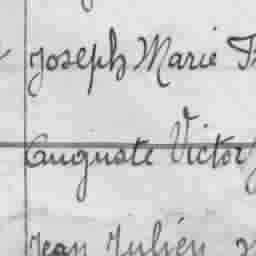 Joseph Marie
Auguste Victor
Jean Julién